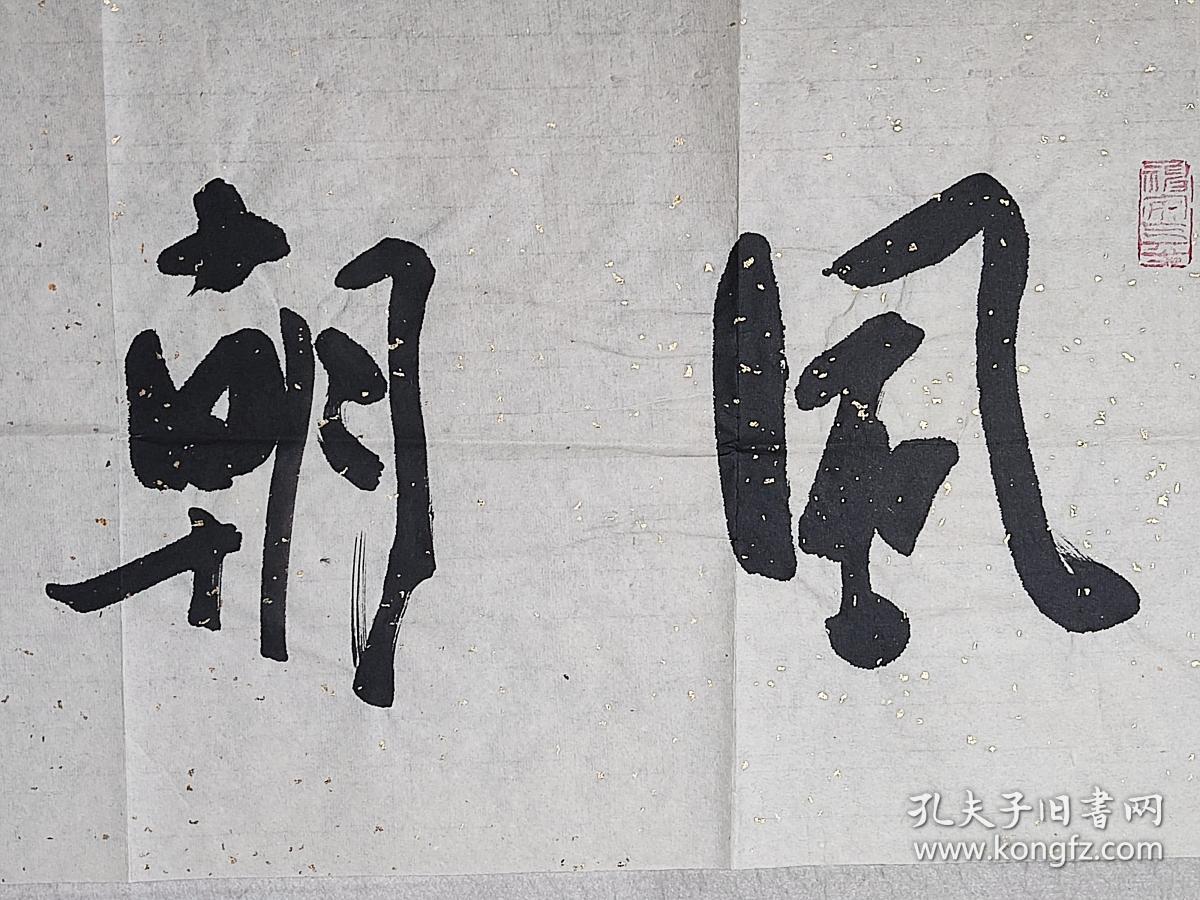 風朝
孔夫子旧书网
www.kongfz.com